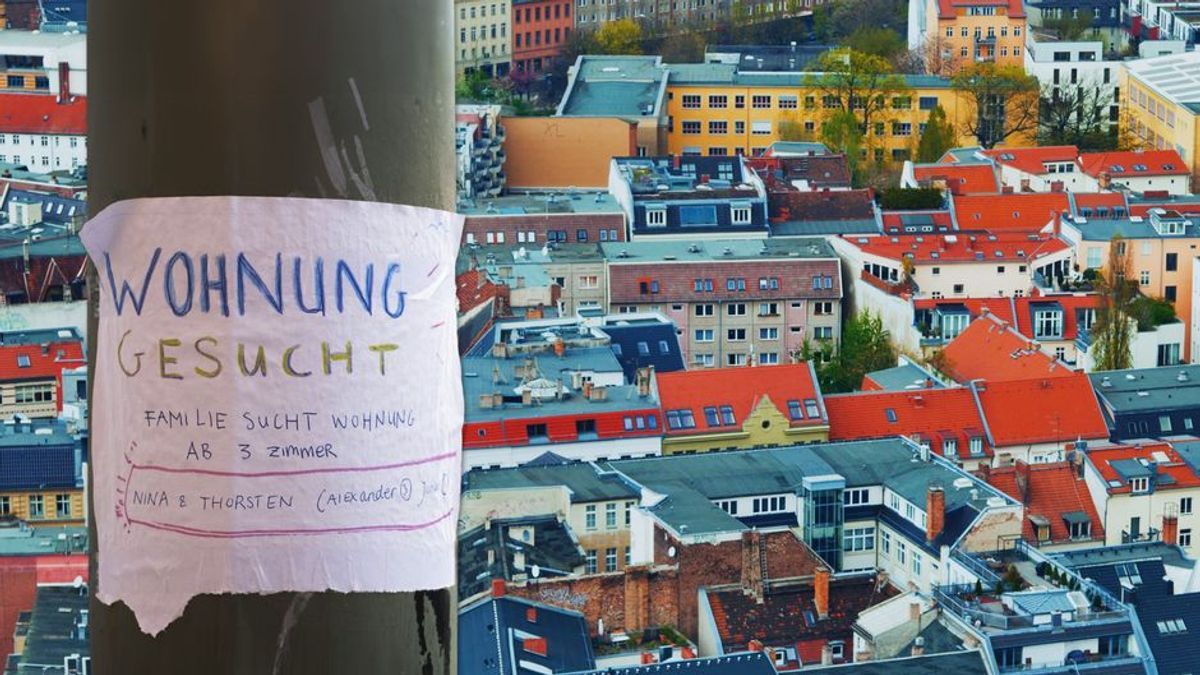 WOHNUNG
GESUCHT
FAMILIE SUCHT WOHNUNG
AB 3 ZIMMER
NINA & THORSTEN (ALEXANDER
XL